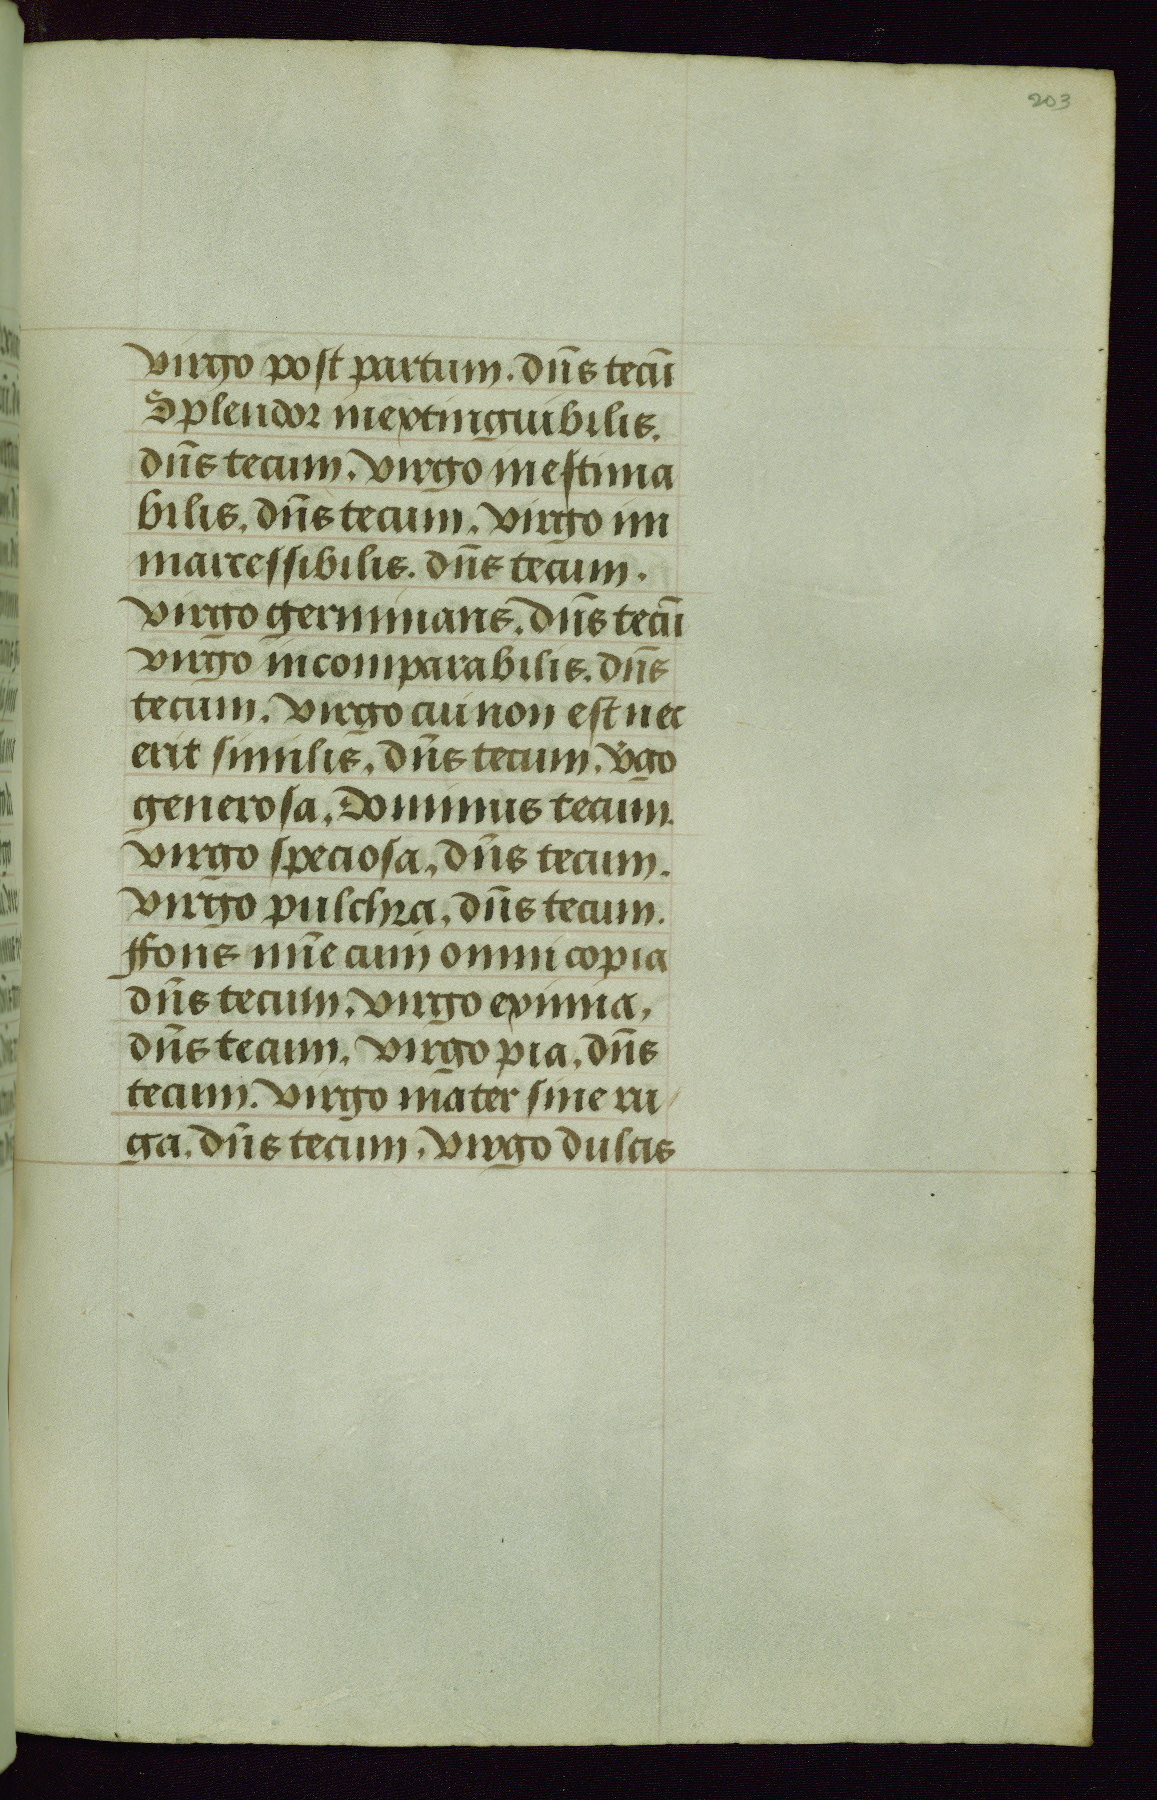 203
virgo post partum. dn̄s tecū
Splendor inextinguibilis.
dn̄s tecum. virgo inestima
bilis. dn̄s tecum. virgo im
marcessibilis. dn̄s tecum.
virgo germinans. dn̄s tecū
virgo incomparabilis. dn̄s
tecum. virgo cui non est nec
erit similis. dn̄s tecum. v̄go
generosa. Dominus tecum.
virgo speciosa. dn̄s tecum.
virgo pulchra. dn̄s tecum.
ffons mīe cum omni copia
dn̄s tecum. virgo eximia.
dn̄s tecum. virgo pia. dn̄s
tecum. virgo mater sine ru/
ga. dn̄s tecum. virgo dulcis